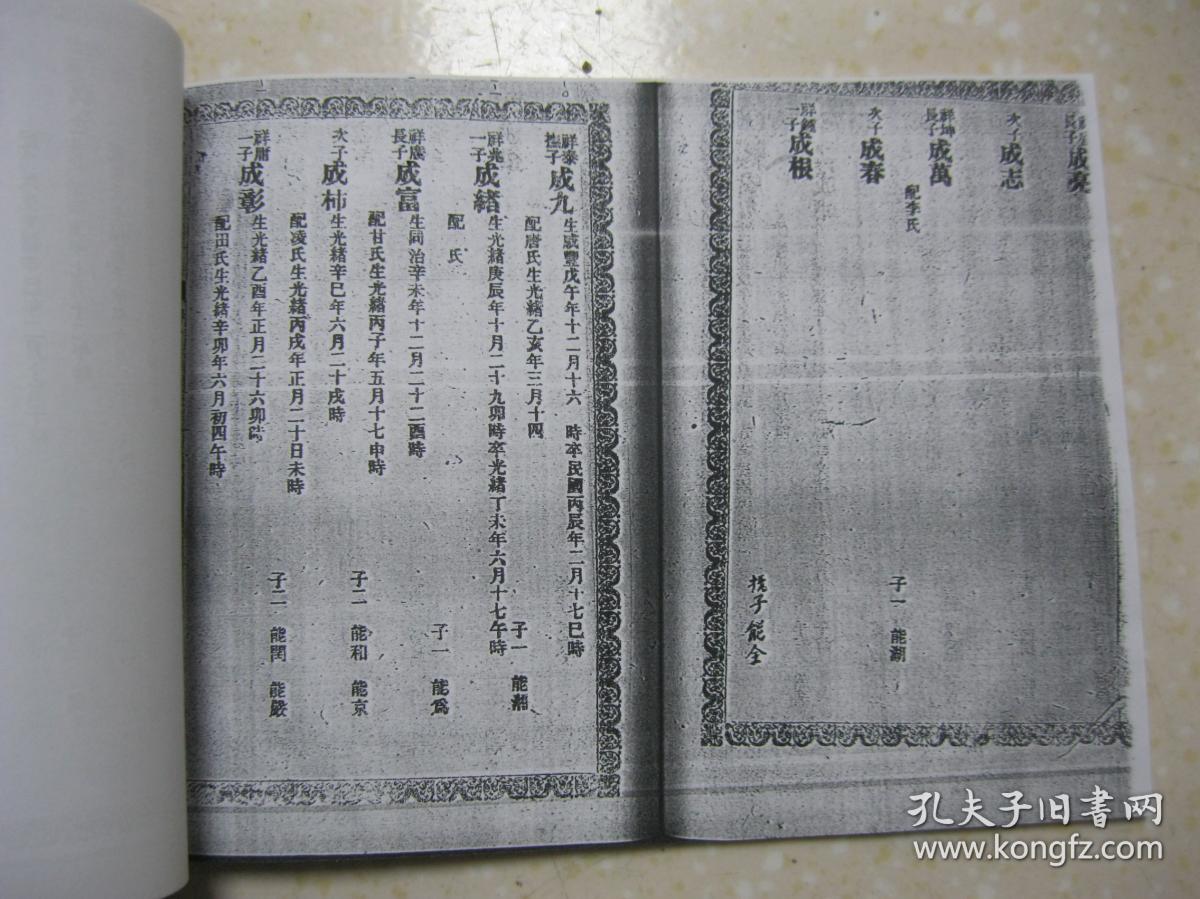 長子 成亮
次子 成志
祥坤長子 成萬
配李氏
次子 成春
子一 能湖
一子 成根
撫子 能全
祥泰撫子 成九 生咸豐戊午年十二月十六 時卒民國丙辰年二月十七巳時
配唐氏生光緒乙亥年三月十四
子一 能
祥兆一子 成緒 生光緒庚辰年十月二十九卯時卒光緒丁未年六月十七午時
配 氏
祥廣長子 成富 生同治辛未年十二月二十二酉時
配甘氏生光緒丙子年五月十七申時
子一 能爲
次子 成柿 生光緒辛巳年六月二十戌時
配凌氏生光緒丙戌年正月二十日未時
子二 能和 能京
祥庸一子 成彰 生光緒乙酉年正月二十六卯時
配田氏生光緒辛卯年六月初四午時
子二 能閏 能嚴
孔夫子旧书网
www.kongfz.com